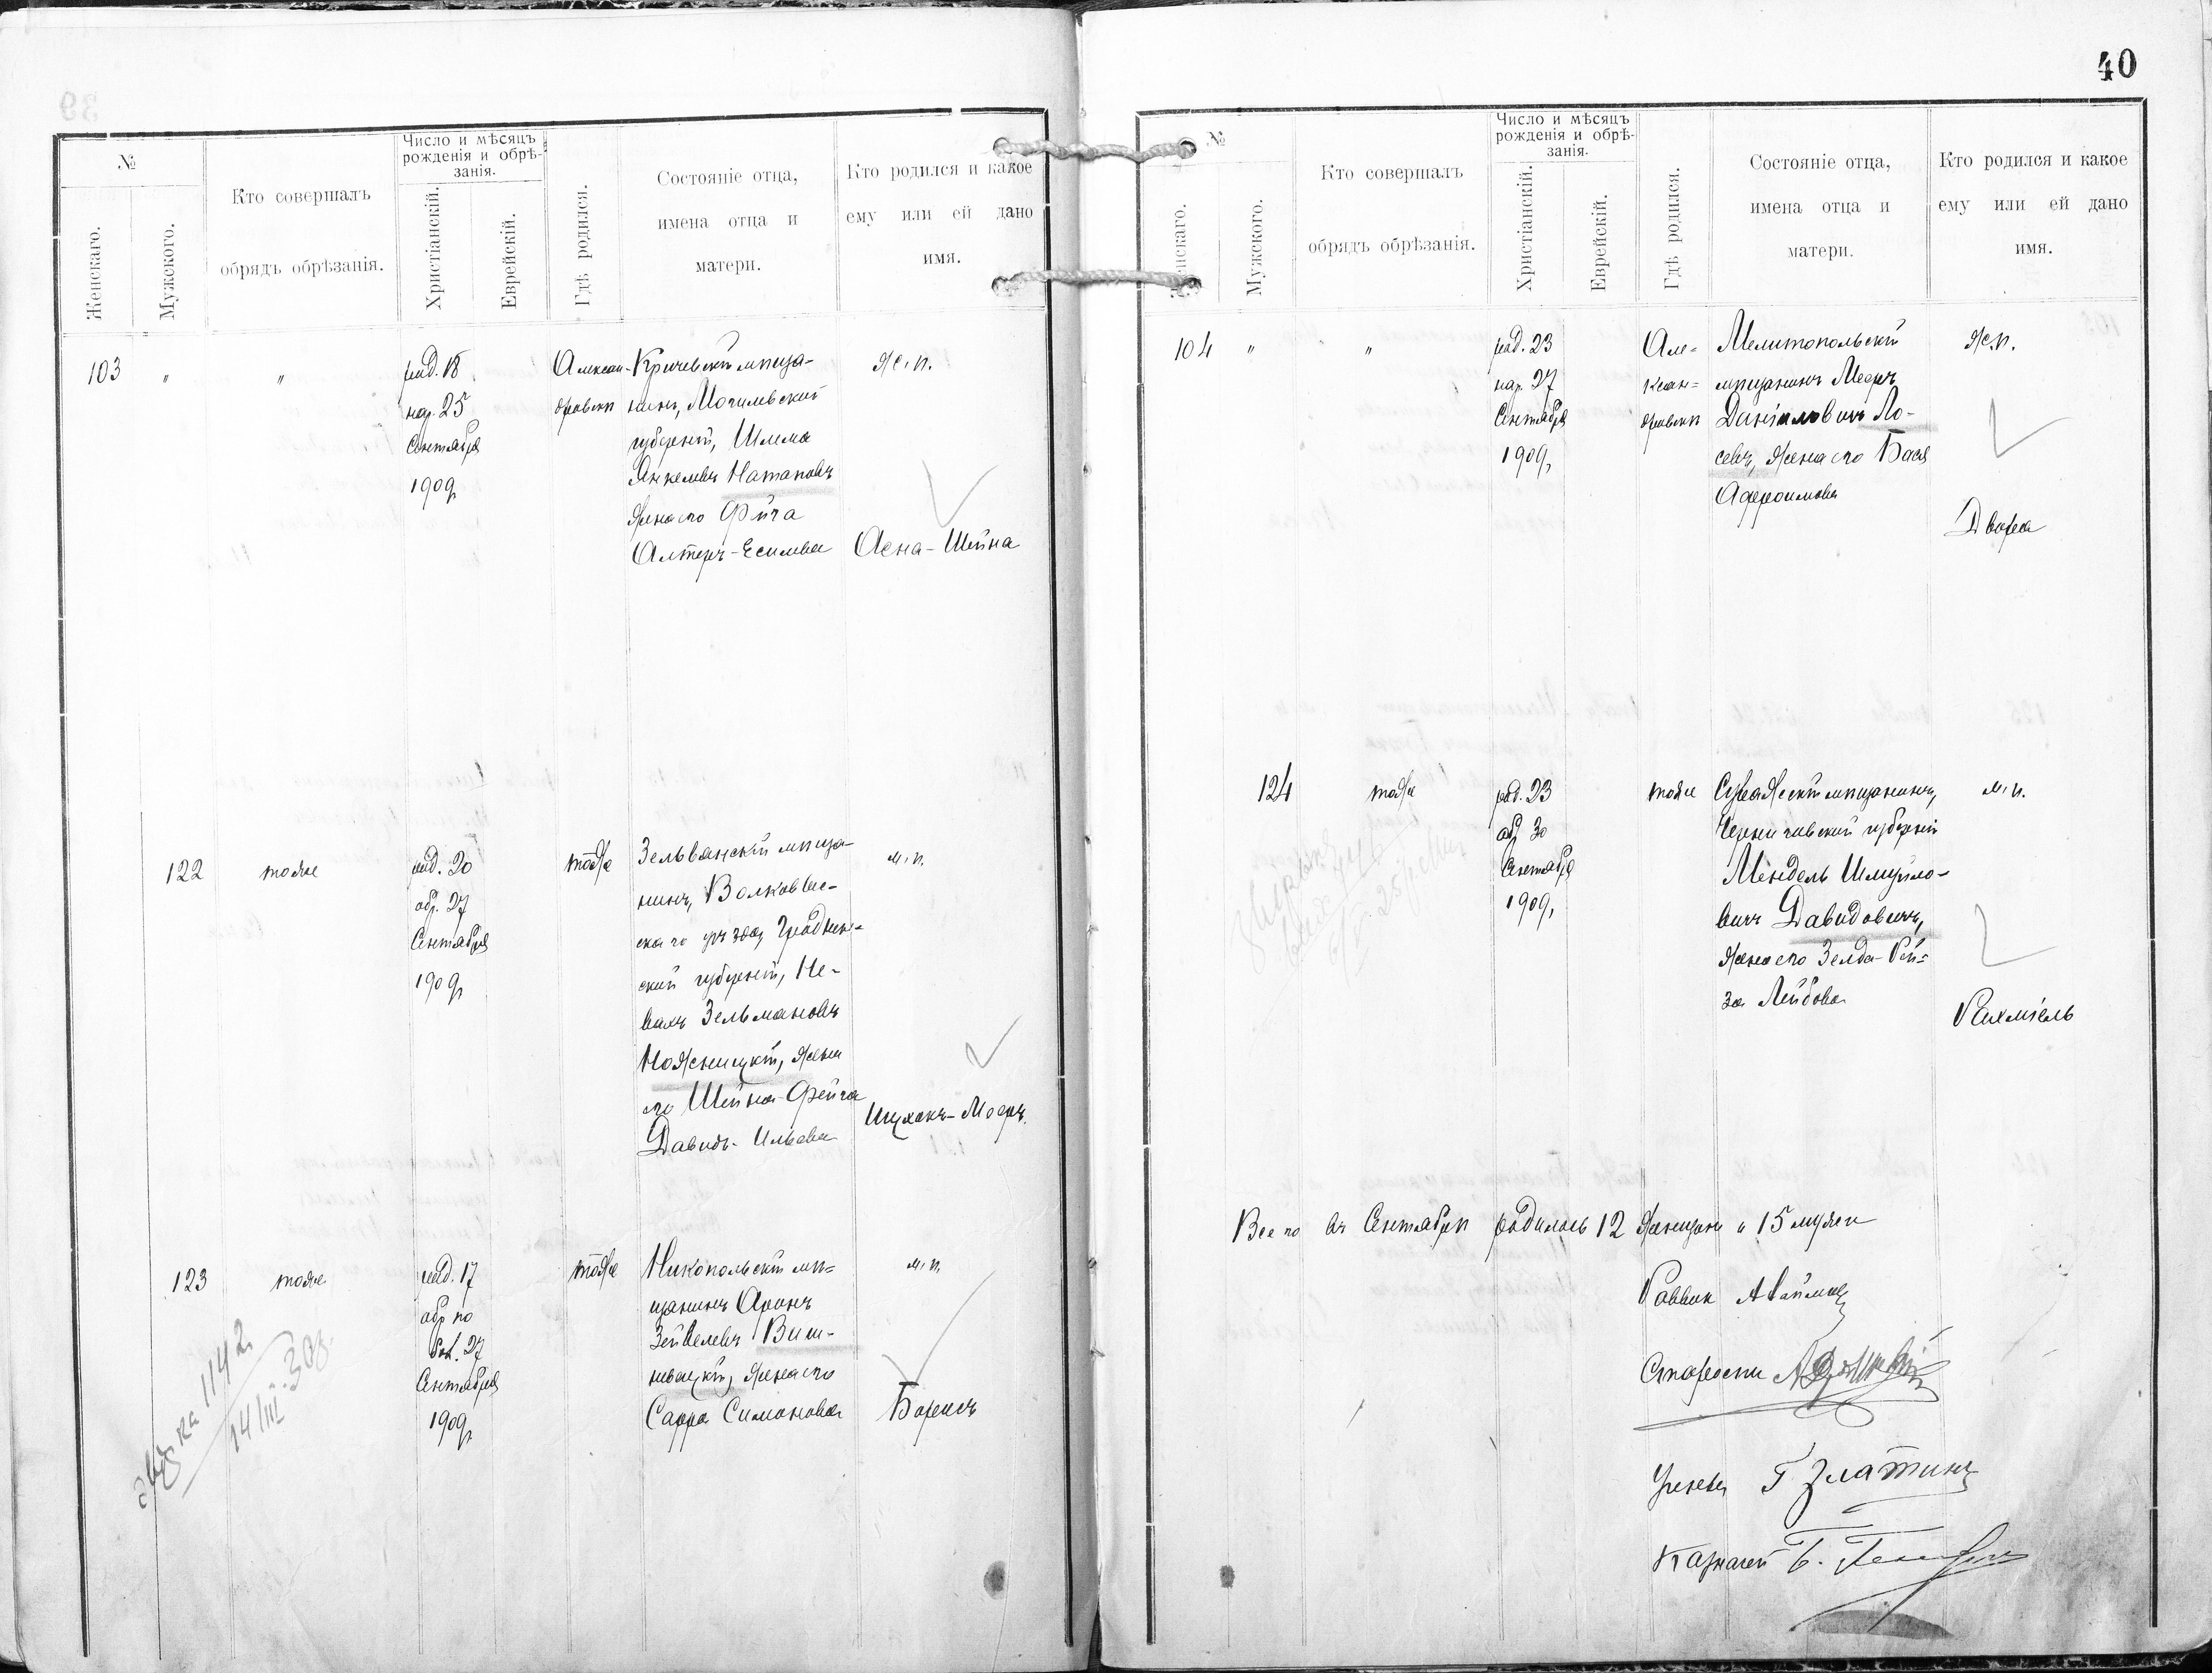 40
№
Женскаго.
Мужского.
Кто совершалъ
обрядъ обрѣзанія.
Число и мѣсяцъ
рожденія и обрѣ-
занія.
Христіанскій.
Еврейскій.
Гдѣ родился.
Состояніе отца,
имена отца и
матери.
Кто родился и какое
ему или ей дано
имя.
103 " "
род. 18
нар. 25
Сентября
1909
Алексан-
дровскѣ
Кричевскій мѣща-
нинъ, Могилевской
губерніи, Шлема
Янкелевъ Натаповъ
жена его Фейга
Алтеръ-Есилева
ж. п.
Асна-Шейна
122
тоже
род. 20
обр. 27
Сентября
1909
тоже
Зельванскій мѣща-
нинъ, Волковыс-
скаго уѣзда, Гроднен-
ской губерніи, Не-
вахъ Зельмановъ
Ножницкій, жена
его Шейна-Фейга
Давидъ-Ильева
м. п.
Ицхокъ-Мееръ
123
тоже
род. 17
обр. по
бол. 27
Сентября
1909
тоже
Никопольскій мѣ-
щанинъ Аронъ
Зейвелевъ Виш-
невецкій, жена его
Сарра Симонова
м. п.
Борисъ
1142
14/III 30
№
Женскаго.
Мужского.
Кто совершалъ
обрядъ обрѣзанія.
Число и мѣсяцъ
рожденія и обрѣ-
занія.
Христіанскій.
Еврейскій.
Гдѣ родился.
Состояніе отца,
имена отца и
матери.
Кто родился и какое
ему или ей дано
имя.
104 " "
род. 23
нар. 27
Сентября
1909,
Але-
ксан-
дровскѣ
Мелитопольскій
мѣщанинъ Мееръ
Даніиловичъ Ло-
севъ, жена его Бася
Афроимова
ж. п.
Двойра
124
тоже
род. 23
обр. 30
Сентября
1909,
тоже
Суражскій мѣщанинъ,
Черниговской губерніи
Мендель Шмуйло-
вичъ Давидовичъ,
жена его Зелда-Рей-
за Лейбова
м. п.
Рахміель
Всего въ Сентябрѣ родилось 12 женщинъ и 15 мужчи
Раввин
Староста
Ученый Г Златинъ
Казначей Б.